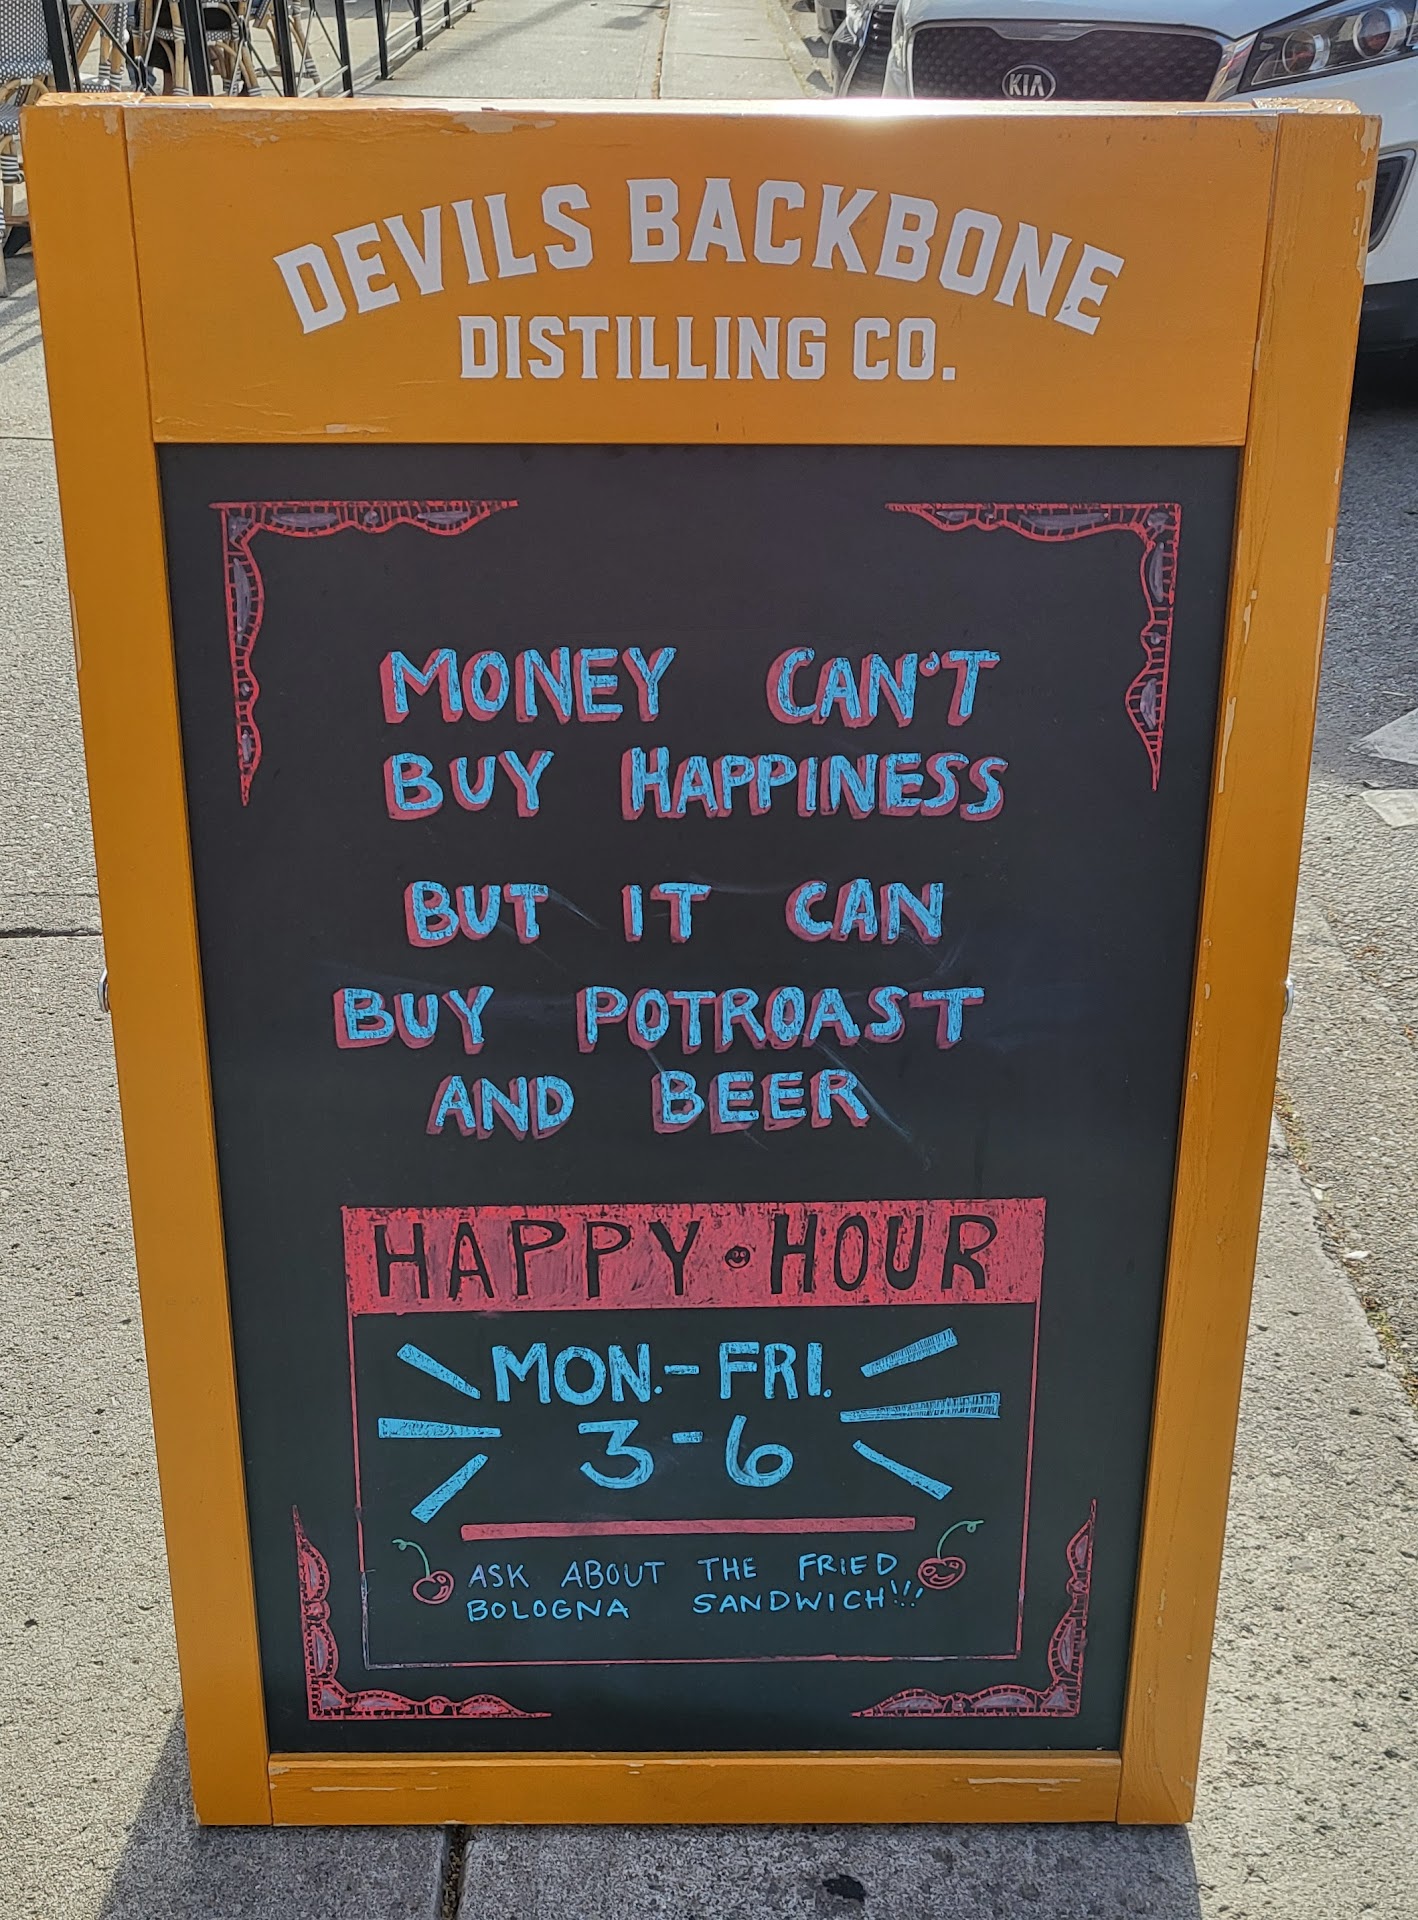 KIA
DEVILS BACKBONE
DISTILLING CO.
MONEY CAN'T
BUY HAPPINESS
BUT IT CAN
BUY POTROAST
AND BEER
HAPPY HOUR
MON.-FRI.
3-6
ASK ABOUT THE FRIED
BOLOGNA SANDWICH!!!